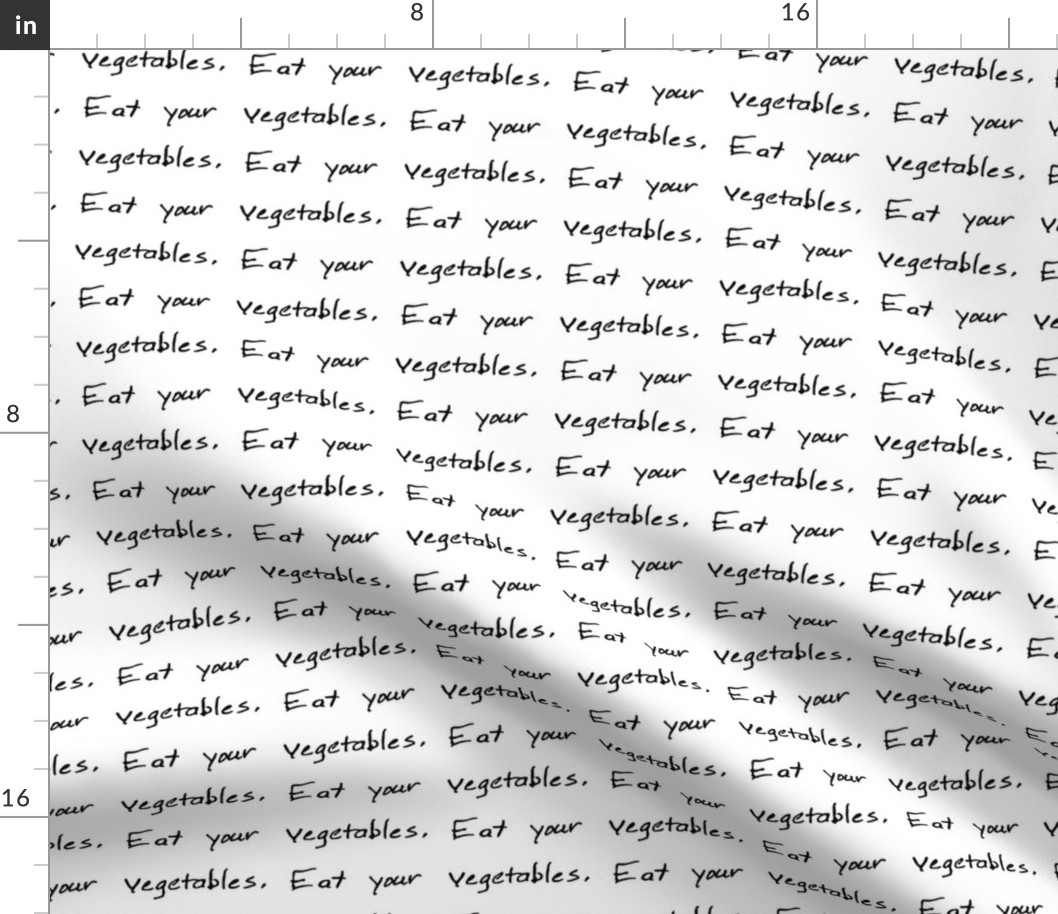 in
8 16
Eat your vegetables.
vegetables. Eat your vegetables. Eat your vegetables. Eat your
Eat your vegetables. Eat your vegetables. Eat your vegetables.
vegetables. Eat your vegetables. Eat your vegetables. Eat your
Eat your vegetables. Eat your vegetables. Eat your vegetables.
vegetables. Eat your vegetables. Eat your vegetables. Eat your
Eat your vegetables. Eat your vegetables. Eat your vegetables.
vegetables. Eat your vegetables. Eat your vegetables. Eat your
8
Eat your vegetables. Eat your vegetables. Eat your vegetables.
vegetables. Eat your vegetables. Eat your vegetables. Eat your
Eat your vegetables. Eat your vegetables. Eat your vegetables.
vegetables. Eat your vegetables. Eat your vegetables. Eat your
Eat your vegetables. Eat your vegetables. Eat your vegetables.
vegetables. Eat your vegetables. Eat your vegetables. Eat your
Eat your vegetables. Eat your vegetables. Eat your vegetables.
vegetables. Eat your vegetables. Eat your vegetables. Eat your
Eat your vegetables. Eat your vegetables. Eat your vegetables.
16
your vegetables. Eat your vegetables. Eat your vegetables. Eat your
Eat your vegetables. Eat your vegetables. Eat your vegetables.
your vegetables. Eat your vegetables. Eat your vegetables. Eat your